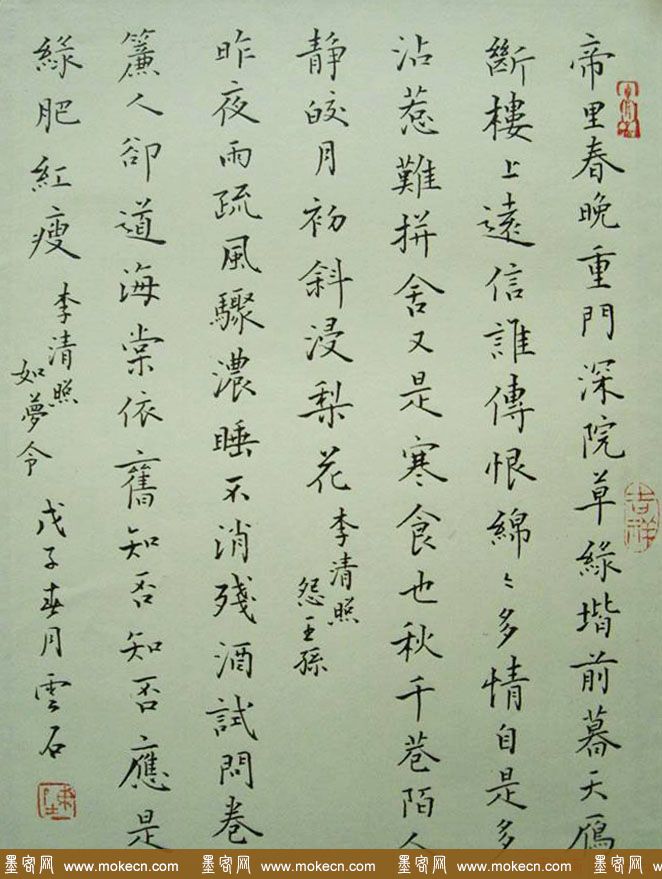 帝里春晚重門深院草綠堦前暮天鴈
斷樓上遠信誰傳恨綿〻多情自是多
沾惹難拼舍又是寒食也秋千巷陌人
靜皎月初斜浸梨花
李清照
怨王孫
昨夜雨疏風驟濃睡不消殘酒試問卷
簾人卻道海棠依舊知否知否應是
綠肥紅瘦
李清照
如夢令
戊子春月雲石
吉祥
墨客网 www.mokecn.com 墨客网 www.mokecn.com 墨客网 www.mokecn.com 墨客网 w